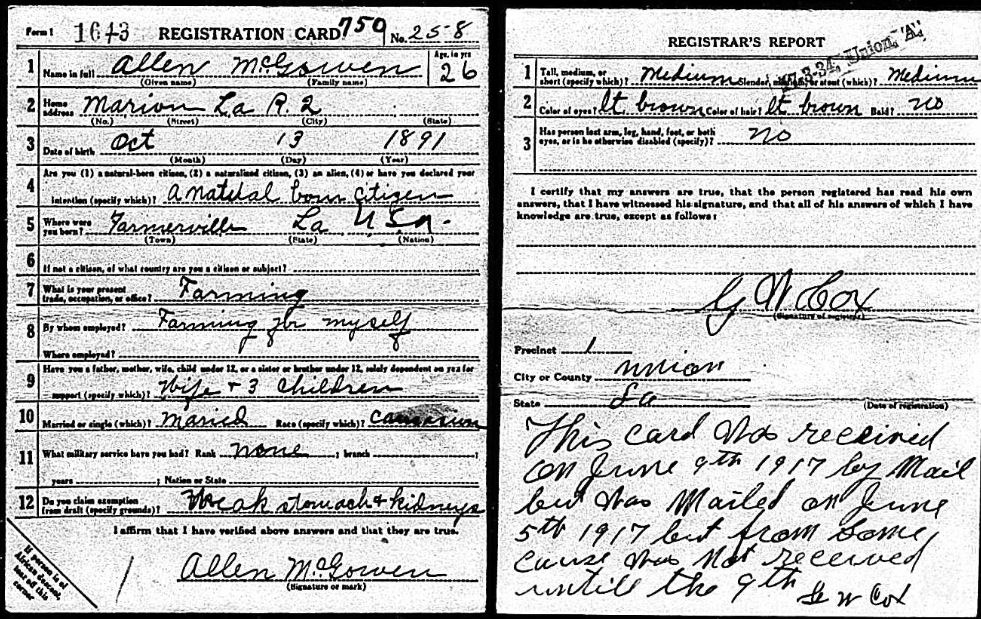 Form 1 1643 REGISTRATION CARD 759 No. 258
1 Name in full Allen McGowen Age, in yrs 26
(Given name) (Family name)
2 Home address Marion La R. 2
(No.) (Street) (City) (State)
3 Date of birth Oct 13 1891
(Month) (Day) (Year)
4 Are you (1) a natural-born citizen, (2) a naturalized citizen, (3) an alien, (4) or have you declared your
intention (specify which)? a natural born citizen
5 Where were you born? Farmerville La USA
(Town) (State) (Nation)
6 If not a citizen, of what country are you a citizen or subject?
7 What is your present trade, occupation, or office? Farming
8 By whom employed? Farming for myself
Where employed?
9 Have you a father, mother, wife, child under 12, or a sister or brother under 12, solely dependent on you for
support (specify which)? Wife + 3 children
10 Married or single (which)? Maried Race (specify which)? Caucasian
11 What military service have you had? Rank none ; branch ;
years ; Nation or State
12 Do you claim exemption from draft (specify grounds)? Weak stomach + kidneys
I affirm that I have verified above answers and that they are true.
Allen McGowen
(Signature or mark)
If person is of
African descent,
tear off this
corner
REGISTRAR'S REPORT
17-3-34. Union, "A"
1 Tall, medium, or short (specify which)? Medium Slender, medium, or stout (which)? Medium
2 Color of eyes? lt brown Color of hair? lt brown Bald? no
3 Has person lost arm, leg, hand, foot, or both
eyes, or is he otherwise disabled (specify)? no
I certify that my answers are true, that the person registered has read his own
answers, that I have witnessed his signature, and that all of his answers of which I have
knowledge are true, except as follows:
G W Cox
(Signature of registrar)
Precinct 1
City or County Union
State La
(Date of registration)
This card was received
on June 9th 1917 by Mail
but was Mailed on June
5th 1917 but from some
cause was not received
untill the 9th G W Cox